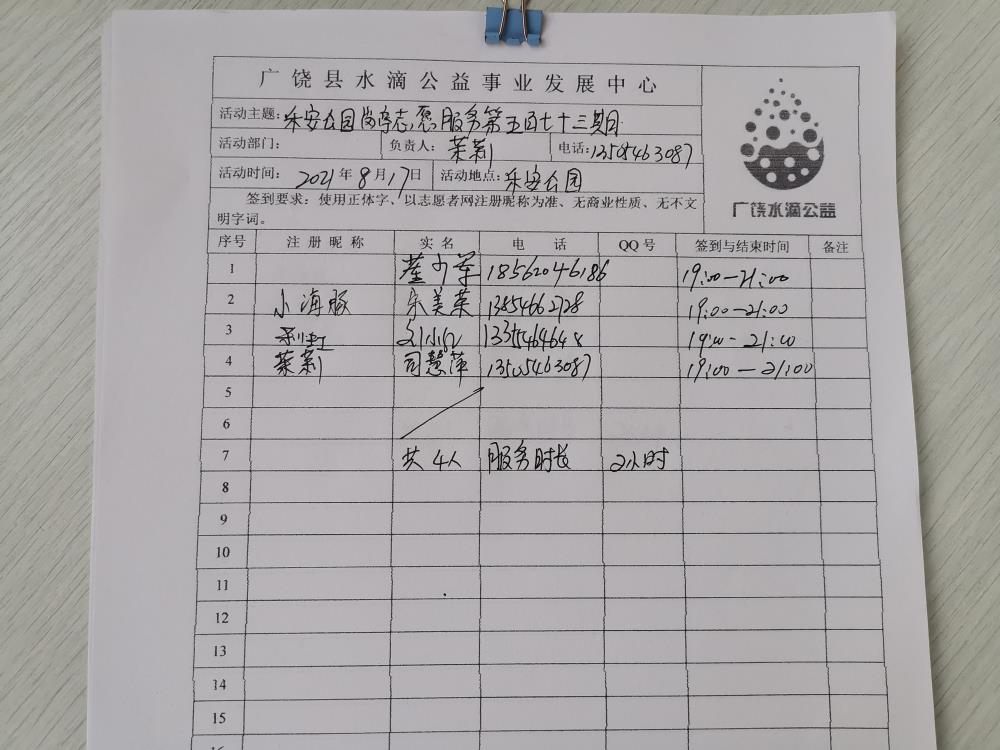 广饶县水滴公益事业发展中心
活动主题:乐安公园岗亭志愿服务第五百七十三期
活动部门: 负责人:茉莉 电话:13505463087
活动时间: 2021年8月17日 活动地点:乐安公园
签到要求:使用正体字、以志愿者网注册昵称为准、无商业性质、无不文
明字词。
广饶水滴公益
序号 注册昵称 实名 电话 QQ号 签到与结束时间 备注
1 18562046186 19:00-21:00
2 小海豚 宋美荣 13854662728 19:00-21:00
3 19:00-21:00
4 茉莉 司慧萍 13505463087 19:00-21:00
5
6
7 共4人 服务时长 2小时
8
9
10
11
12
13
14
15
16